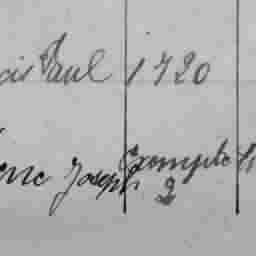 cis Paul 1720
enc Joseph Exempté
2